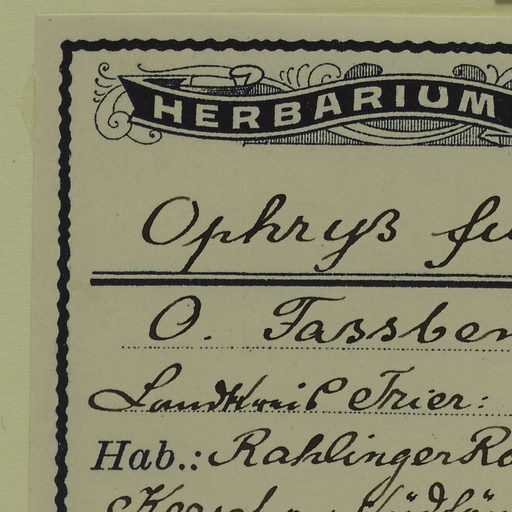 HERBARIUM
Ophryß fu
O. Tassben
Landkreiß Trier:
Hab.: Rahlinger Ro